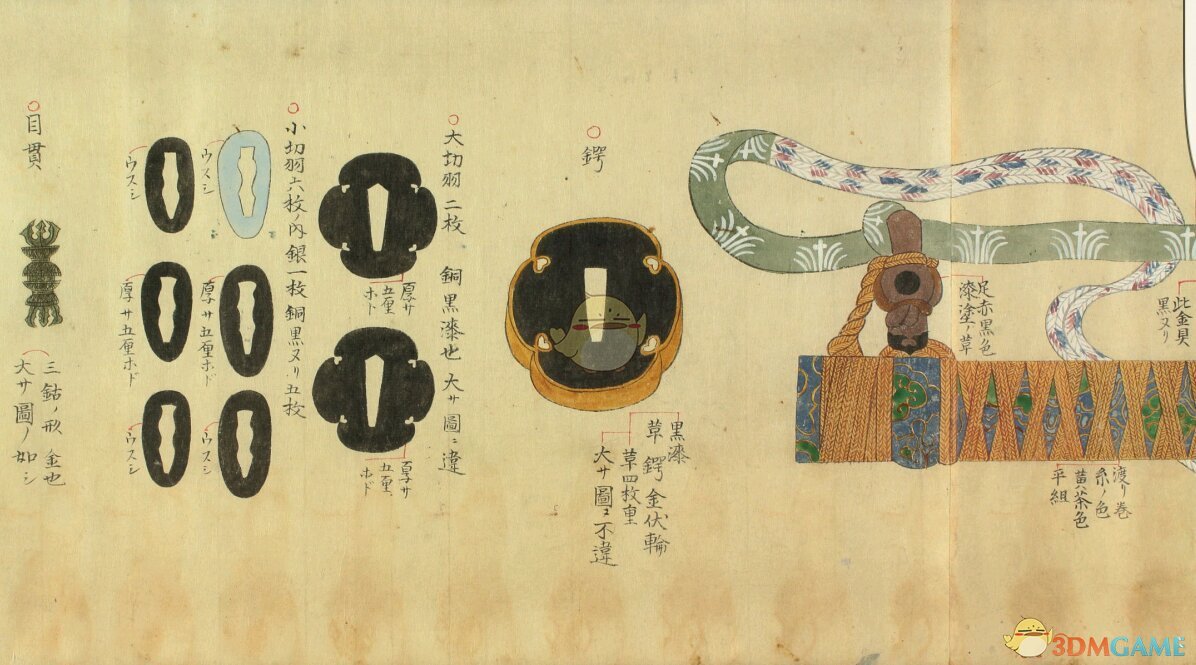 此金貝
黒ヌリ
足赤黒色
漆塗ノ革
渡り巻
糸ノ色
黄茶色
平組
○
鍔
黒漆
革鍔金伏輪
革四枚重
大サ圖ニ不違
○大切羽二枚 銅黒漆也 大サ圖ニ違
厚サ
五厘
ホド
厚サ
五厘
ホド
○小切羽六枚ノ内銀一枚銅黒ヌリ五枚
ウスシ
厚サ五厘ホド
ウスシ
ウスシ
厚サ五厘ホド
ウスシ
○目貫
三鈷ノ形 金也
大サ圖ノ如シ
3DMGAME